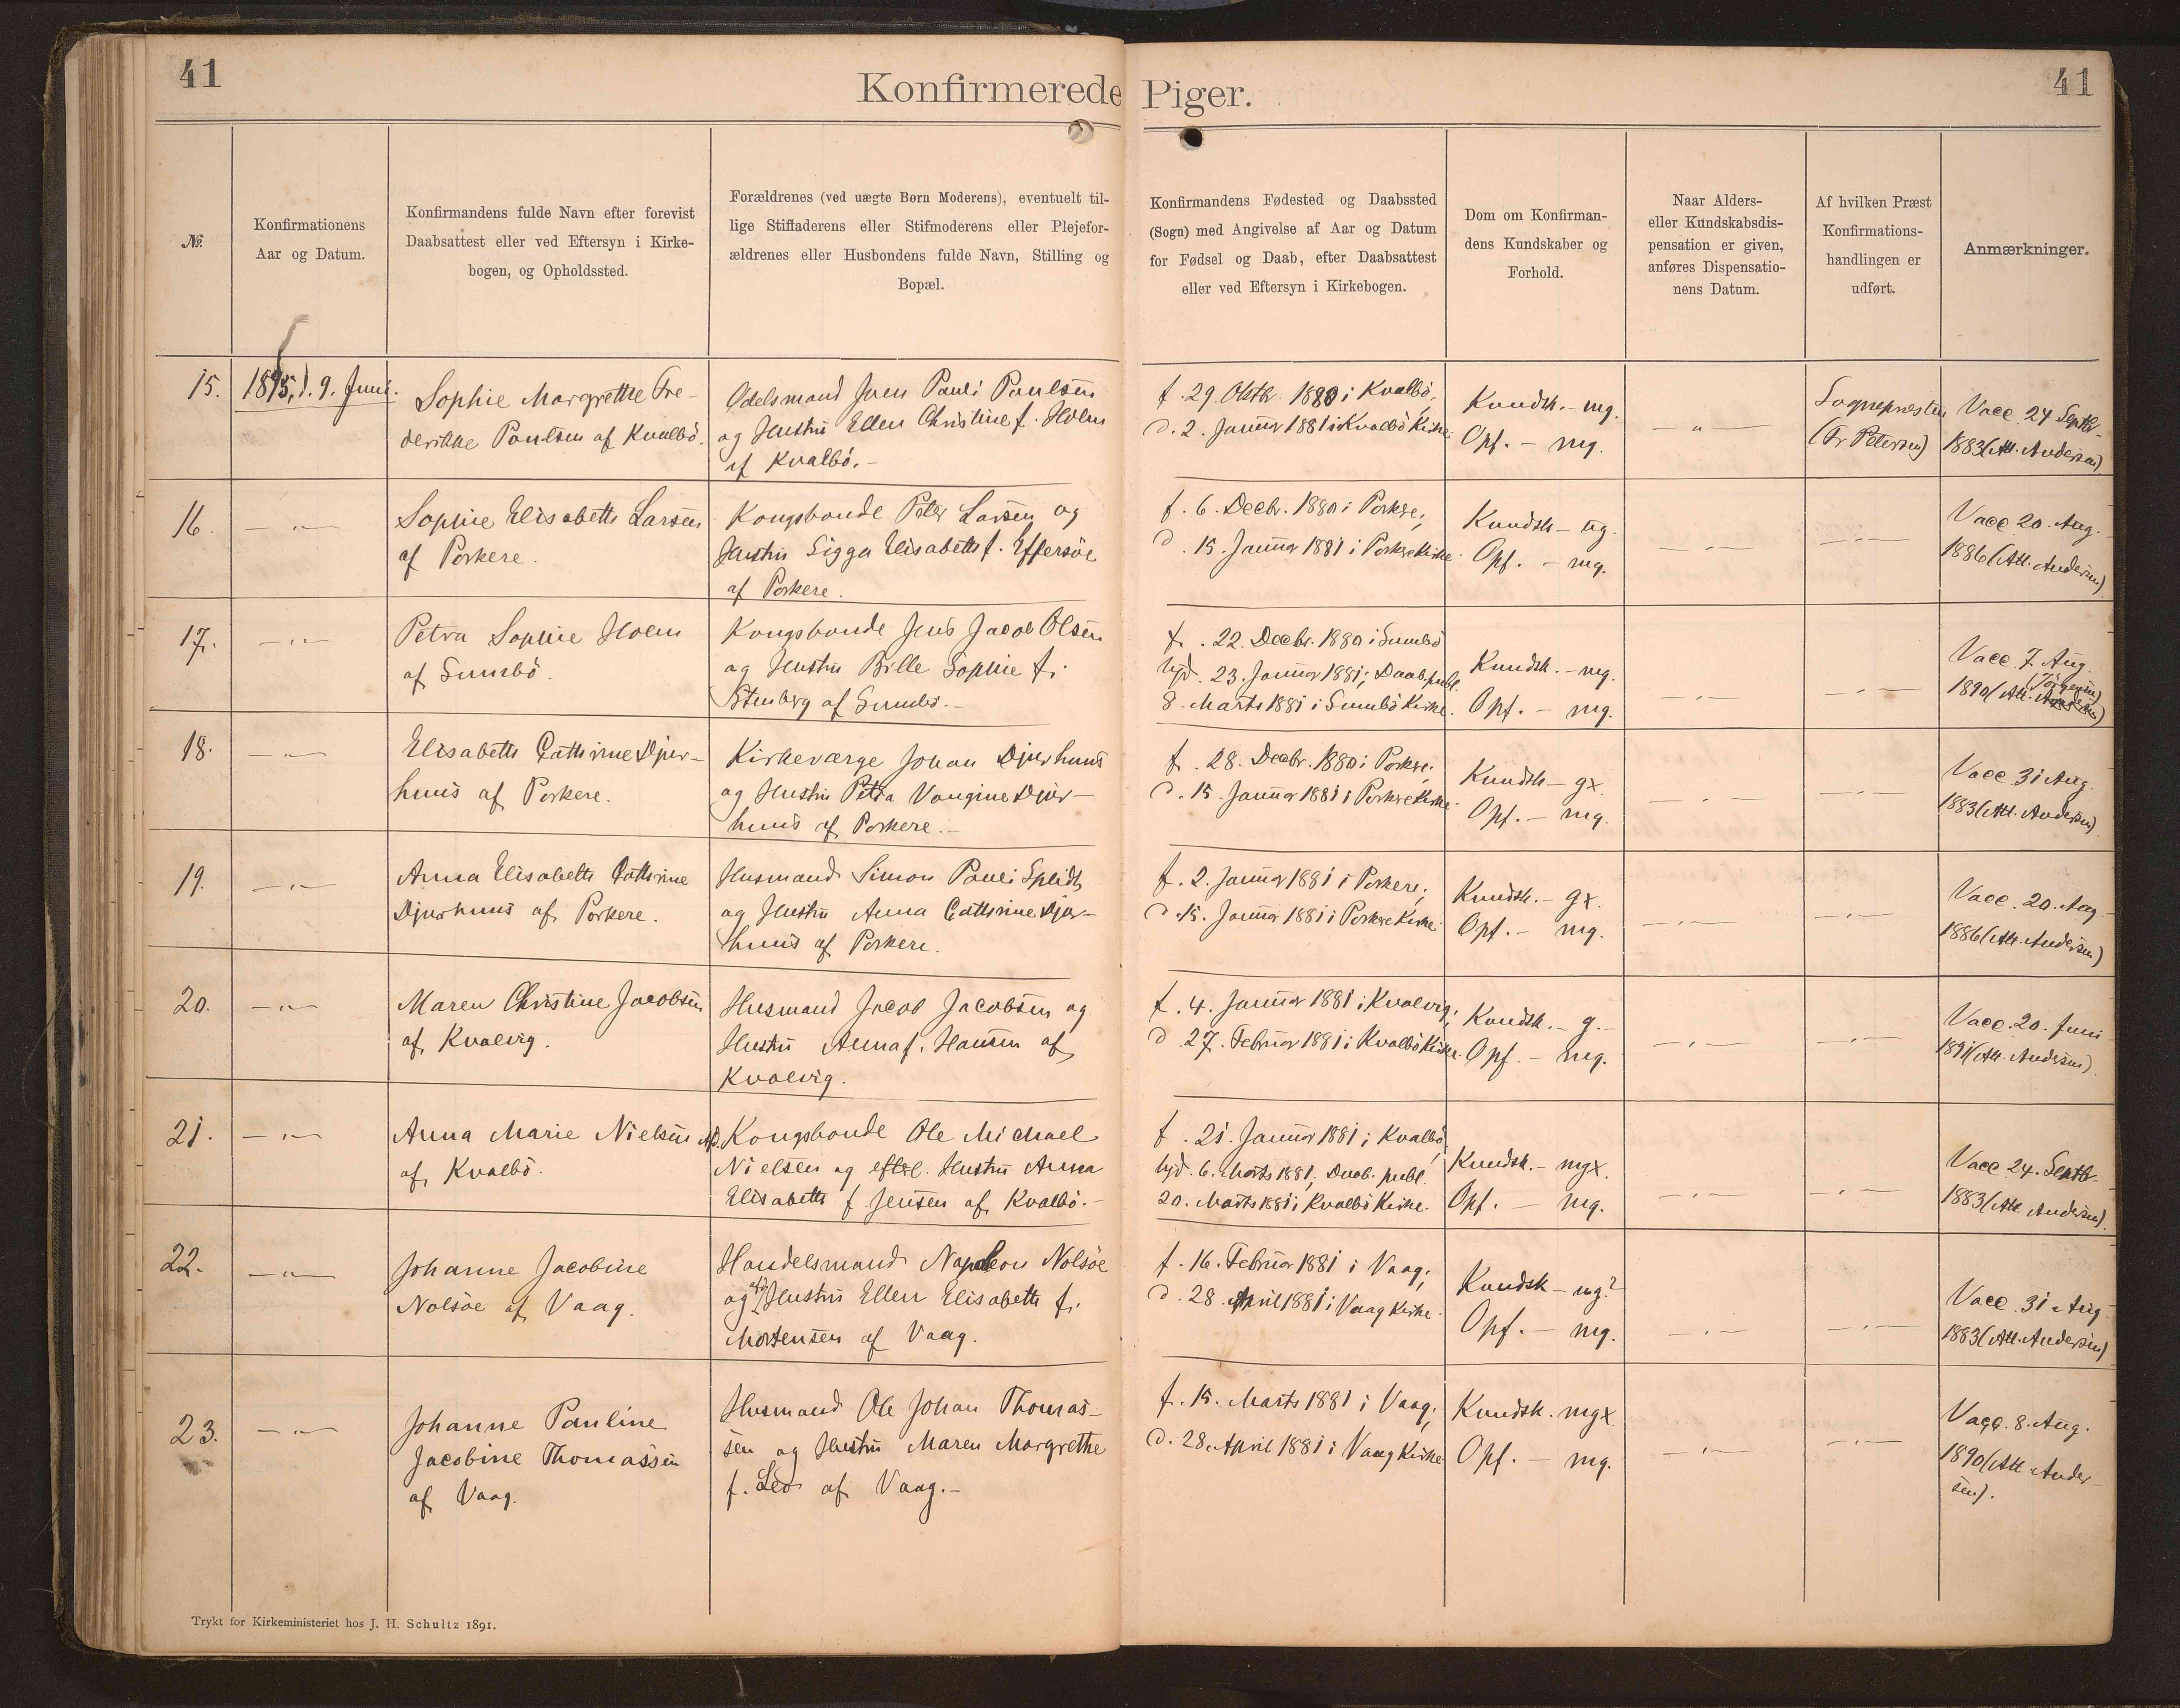 41
Konfirmerede Piger.
41
№.
Konfirmationens
Aar og Datum.
Konfirmandens fulde Navn efter forevist
Daabsattest eller ved Eftersyn i Kirke-
bogen, og Opholdssted.
Forældrenes (ved uægte Børn Moderens), eventuelt til-
lige Stiffaderens eller Stifmoderens eller Plejefor-
ældrenes eller Husbondens fulde Navn, Stilling og
Bopæl.
Konfirmandens Fødested og Daabssted
(Sogn) med Angivelse af Aar og Datum
for Fødsel og Daab, efter Daabsattest
eller ved Eftersyn i Kirkebogen.
Dom om Konfirman-
dens Kundskaber og
Forhold.
Naar Alders-
eller Kundskabsdis-
pensation er given,
anføres Dispensatio-
nens Datum.
Af hvilken Præst
Konfirmations-
handlingen er
udført.
Anmærkninger.
15.
1895, d. 9. Juni.
Sophie Margrethe Fre-
derikke Poulsen af Kvalbö.
Odelsmand Joen Pauli Poulsen
og Hustru Ellen Christine f. Holm
af Kvalbö.-
f. 29. Oktbr. 1880 i Kvalbö;
d. 2. Januar 1881 i Kvalbö Kirke.
Kundsk. - mg.
Opf. - mg.
— " —
Sognepræsten
(Fr Petersen)
Vacc. 24 Septbr.
1883 (Att. Andersen)
16.
— " —
Sophie Elisabeth Larsen
af Porkere.
Kongsbonde Peter Larsen og
Hustru Sigga Elisabeth f. Effersöe
af Porkere.
f. 6. Decbr. 1880 i Porkere;
d. 15. Januar 1881 i Porkere Kirke.
Kundsk - ug.
Opf. - mg.
— " —
— " —
Vacc 20. Aug.
1886 (Att. Andersen)
17.
— " —
Petra Sophie Holm
af Sumbö.
Kongsbonde Jens Jacob Olsen
og Hustru Bille Sophie f.
Stenberg af Sumbö.-
f. 22. Decbr. 1880 i Sumbö
hjd. 23. Januar 1881; Daab. publ.
8. Marts 1881 i Sumbö Kirke.
Kundsk. - mg.
Opf. - mg.
— " —
— " —
Vacc 7. Aug.
(Jörgensen)
1890 (Att. Andersen)
18.
— " —
Elisabeth Cathrine Djur-
huus af Porkere.
Kirkeværge Johan Djurhuus
og Hustru Petra Vaagine Djur-
huus af Porkere.-
f. 28. Decbr. 1880 i Porkere;
d. 15. Januar 1881 i Porkere Kirke.
Kundsk - gx.
Opf. - mg.
— " —
— " —
Vacc 31 Aug.
1883 (Att. Andersen)
19.
— " —
Anna Elisabeth Cathrine
Djurhuus af Porkere.
Husmand Simon Pauli Splidt
og Hustru Anna Cathrine Djur-
huus af Porkere.
f. 2. Januar 1881 i Porkere;
d. 15. Januar 1881 i Porkere Kirke.
Kundsk. - gx.
Opf. - mg.
— " —
— " —
Vacc. 20. Aug.
1886 (Att. Andersen)
20.
— " —
Maren Christine Jacobsen
af Kvalvig.
Husmand Jacob Jacobsen og
Hustru Anna f. Hansen af
Kvalvig.
f. 4. Januar 1881 i Kvalvig;
d. 27. Februar 1881 i Kvalbö Kirke.
Kundsk. - g.-
Opf. - mg.
— " —
— " —
Vacc. 20. Juni
1891 (Att. Andersen).
21.
— " —
Anna Marie Nielsen
af Kvalbö.
Kongsbonde Ole Michael
Nielsen og efterl. Hustru Anna
Elisabeth f Jensen af Kvalbö.-
f. 21. Januar 1881 i Kvalbö;
hjd. 6. Marts 1881; Daab. publ.
20. Marts 1881 i Kvalbö Kirke.
Kundsk. - mgx.
Opf. - mg.
— " —
— " —
Vacc 24. Septbr.
1883 (Att. Andersen).
22.
— " —
Johanne Jacobine
Nolsöe af Vaag.
Handelsmand Napoleon Nolsöe
og afd. Hustru Ellen Elisabeth f.
Mortensen af Vaag.
f. 16. Februar 1881 i Vaag;
d. 28. April 1881 i Vaag Kirke.
Kundsk - ug?
Opf. - mg.
— " —
— " —
Vacc. 31 Aug
1883 (Att. Andersen)
23.
— " —
Johanne Pauline
Jacobine Thomassen
af Vaag.
Husmand Ole Johan Thomas-
sen og Hustru Maren Margrethe
f. Leo af Vaag.-
f. 15. Marts 1881 i Vaag;
d. 28. April 1881 i Vaag Kirke
Kundsk. mgx
Opf. - mg.
— " —
— " —
Vacc. 8. Aug.
1890 (Att. Ander-
sen).
Trykt for Kirkeministeriet hos J. H. Schultz 1891.